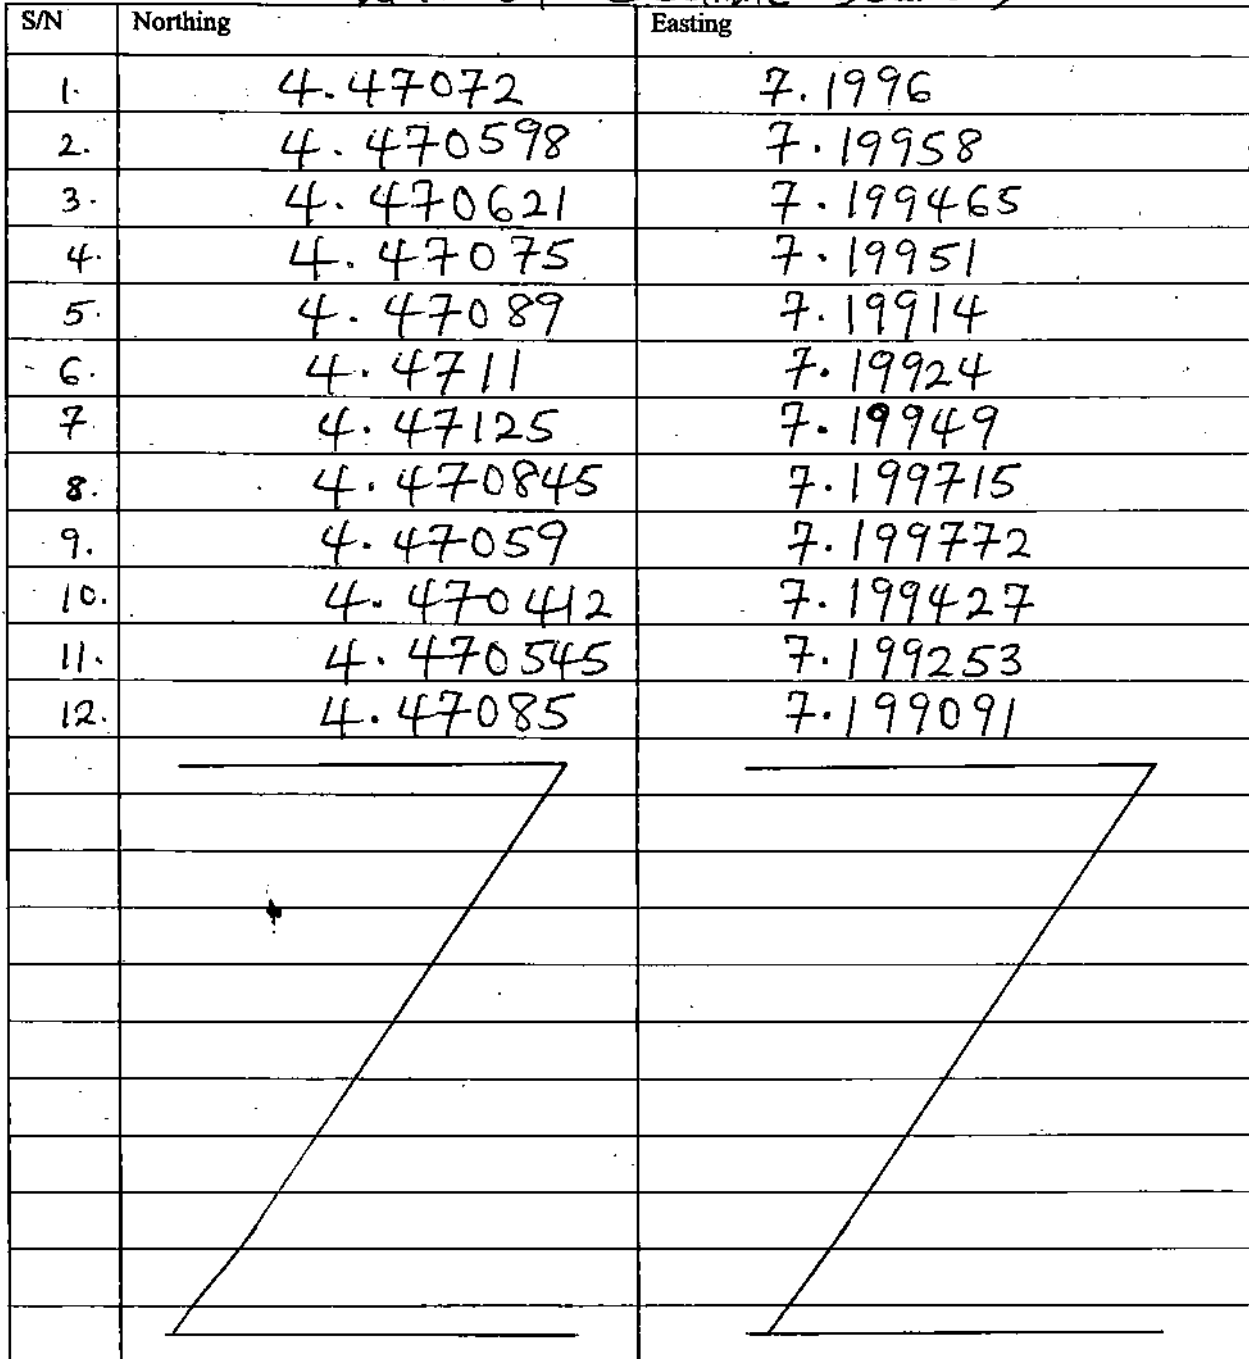 S/N Northing Easting
1. 4.47072 7.1996
2. 4.470598 7.19958
3. 4.470621 7.199465
4. 4.47075 7.19951
5. 4.47089 7.19914
6. 4.4711 7.19924
7. 4.47125 7.19949
8. 4.470845 7.199715
9. 4.47059 7.199772
10. 4.470412 7.199427
11. 4.470545 7.199253
12. 4.47085 7.199091